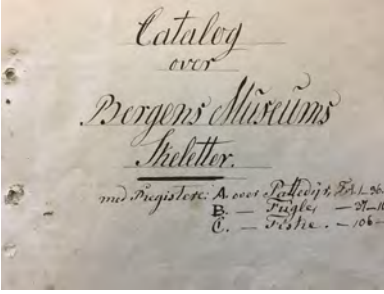 Catalog
over
Bergens Museums
Skeletter.
med Registere: A over Pattedyr, Fol. 1-36
B. — Fugle, — 37-10
C. — Fiske. — 106-